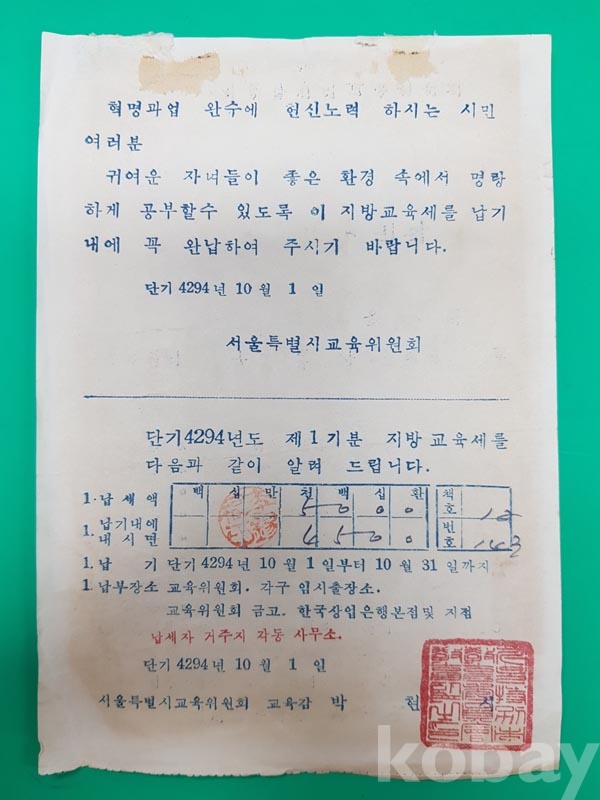 혁명과업 완수에 헌신노력 하시는 시민
여러분
귀여운 자녀들이 좋은 환경 속에서 명랑
하게 공부할수 있도록 이 지방교육세를 납기
내에 꼭 완납하여 주시기 바랍니다.
단기 4294년 10월 1일
서울특별시교육위원회
단기4294년도 제1기분 지방교육세를
다음과 같이 알려 드립니다.
백 십 만 천 백 십 환
1. 납세액 5 0 0 0 책호 12
1. 납기내에 내시면 4 5 0 0 번호 143
1. 납 기 단기 4294년 10월 1일부터 10월 31일까지
1. 납부장소 교육위원회. 각구 임시출장소.
교육위원회 금고. 한국상업은행본점및 지점
납세자 거주지 각동 사무소.
단기 4294년 10월 1일
서울특별시교육위원회 교육감 박 현 식
kobay